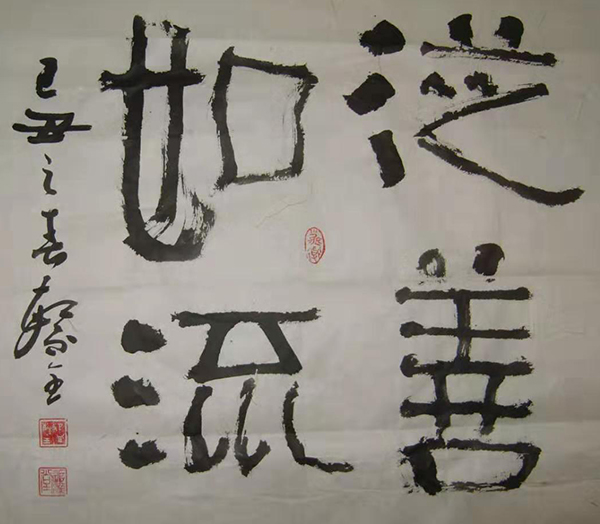 從善
如流
己丑之春